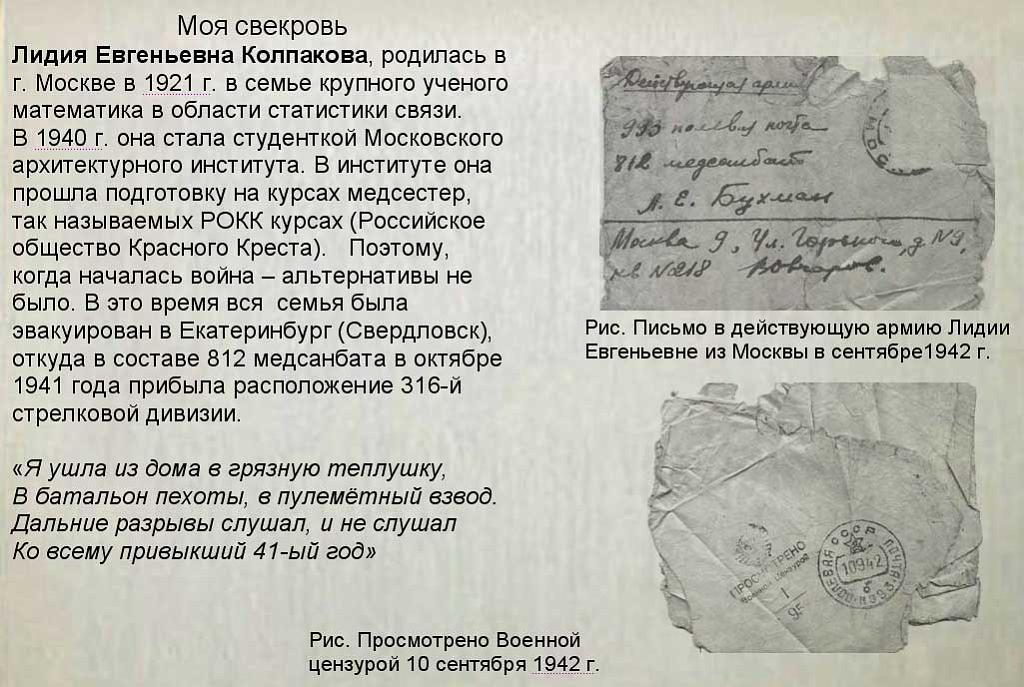 Моя свекровь
Лидия Евгеньевна Колпакова, родилась в
г. Москве в 1921 г. в семье крупного ученого
математика в области статистики связи.
В 1940 г. она стала студенткой Московского
архитектурного института. В институте она
прошла подготовку на курсах медсестер,
так называемых РОКК курсах (Российское
общество Красного Креста). Поэтому,
когда началась война – альтернативы не
было. В это время вся семья была
эвакуирован в Екатеринбург (Свердловск),
откуда в составе 812 медсанбата в октябре
1941 года прибыла расположение 316-й
стрелковой дивизии.
«Я ушла из дома в грязную теплушку,
В батальон пехоты, в пулемётный взвод.
Дальние разрывы слушал, и не слушал
Ко всему привыкший 41-ый год»
Действующая армия
993 полевая почта
812 медсанбат
Л. Е. Бухман
Москва 9, Ул. Горького, д. №9,
кв №218
МОС
Рис. Письмо в действующую армию Лидии
Евгеньевне из Москвы в сентябре1942 г.
ПРОСМОТРЕНО
Военной Цензурой
СССР
ПОЛЕВАЯ ПОЧТА
993
10942
б
Рис. Просмотрено Военной
цензурой 10 сентября 1942 г.